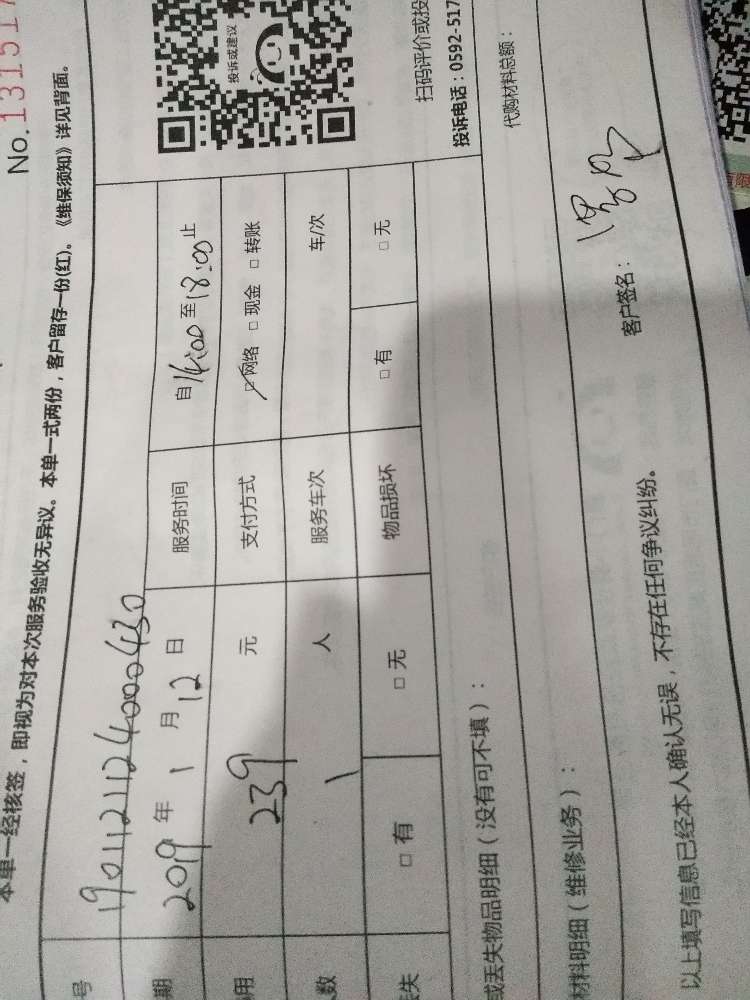 No.131517
本单一经核签，即视为对本次服务验收无异议。本单一式两份，客户留存一份(红)。《维保须知》详见背面。
号 1901121124000430
期 2019 年 1 月 12 日 服务时间 自 14:00 至 18:00 止
用 239 元 支付方式 ☑ 网络 □ 现金 □ 转账
数 1 人 服务车次 车/次
失 □ 有 □ 无 物品损坏 □ 有 □ 无
投诉或建议
扫码评价或投
投诉电话：0592-517
或丢失物品明细（没有可不填）：
代购材料总额：
材料明细（维修业务）：
客户签名：
以上填写信息已经本人确认无误，不存在任何争议纠纷。